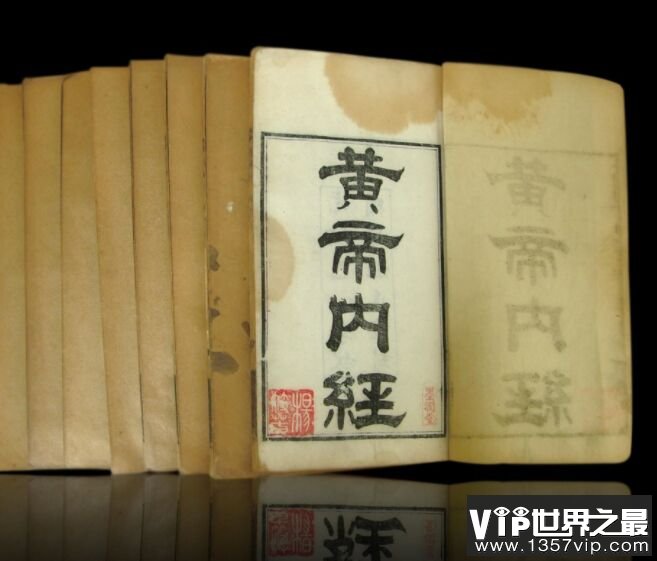 黄帝内經
VIP世界之最
www.1357vip.com